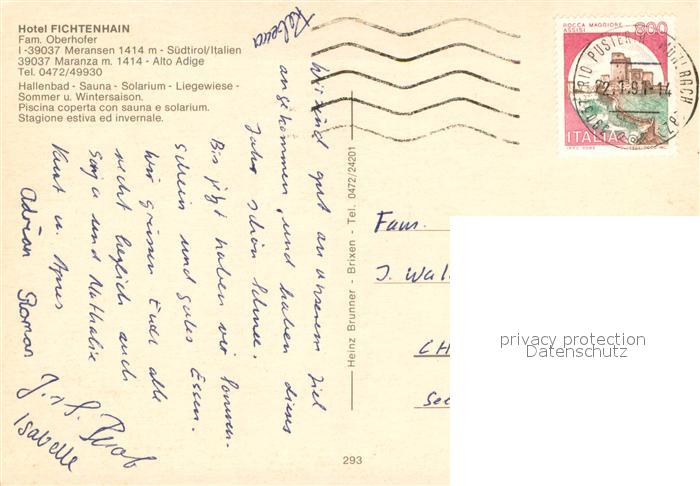 Hotel FICHTENHAIN
Fam. Oberhofer
I-39037 Meransen 1414 m - Südtirol/Italien
39037 Maranza m. 1414 - Alto Adige
Tel. 0472/49930
Hallenbad - Sauna - Solarium - Liegewiese -
Sommer u. Wintersaison.
Piscina coperta con sauna e solarium.
Stagione estiva ed invernale.
Rebecca
Wir sind gut an unserem Ziel
angekommen, und haben dieses
Jahr schön Schnee.
Bis jetzt haben wir Sonnen-
schein und gutes Essen.
Wir grüssen Euch alle
recht herzlich auch
Sonja und Nathalie
Kurt u. Agnes
Adrian Roman
Isabelle
Heinz Brunner - Brixen - Tel. 0472/24201
293
ROCCA MAGGIORE
ASSISI
800
ITALIA
Fam.
J. Wal
CH
See
privacy protection
Datenschutz